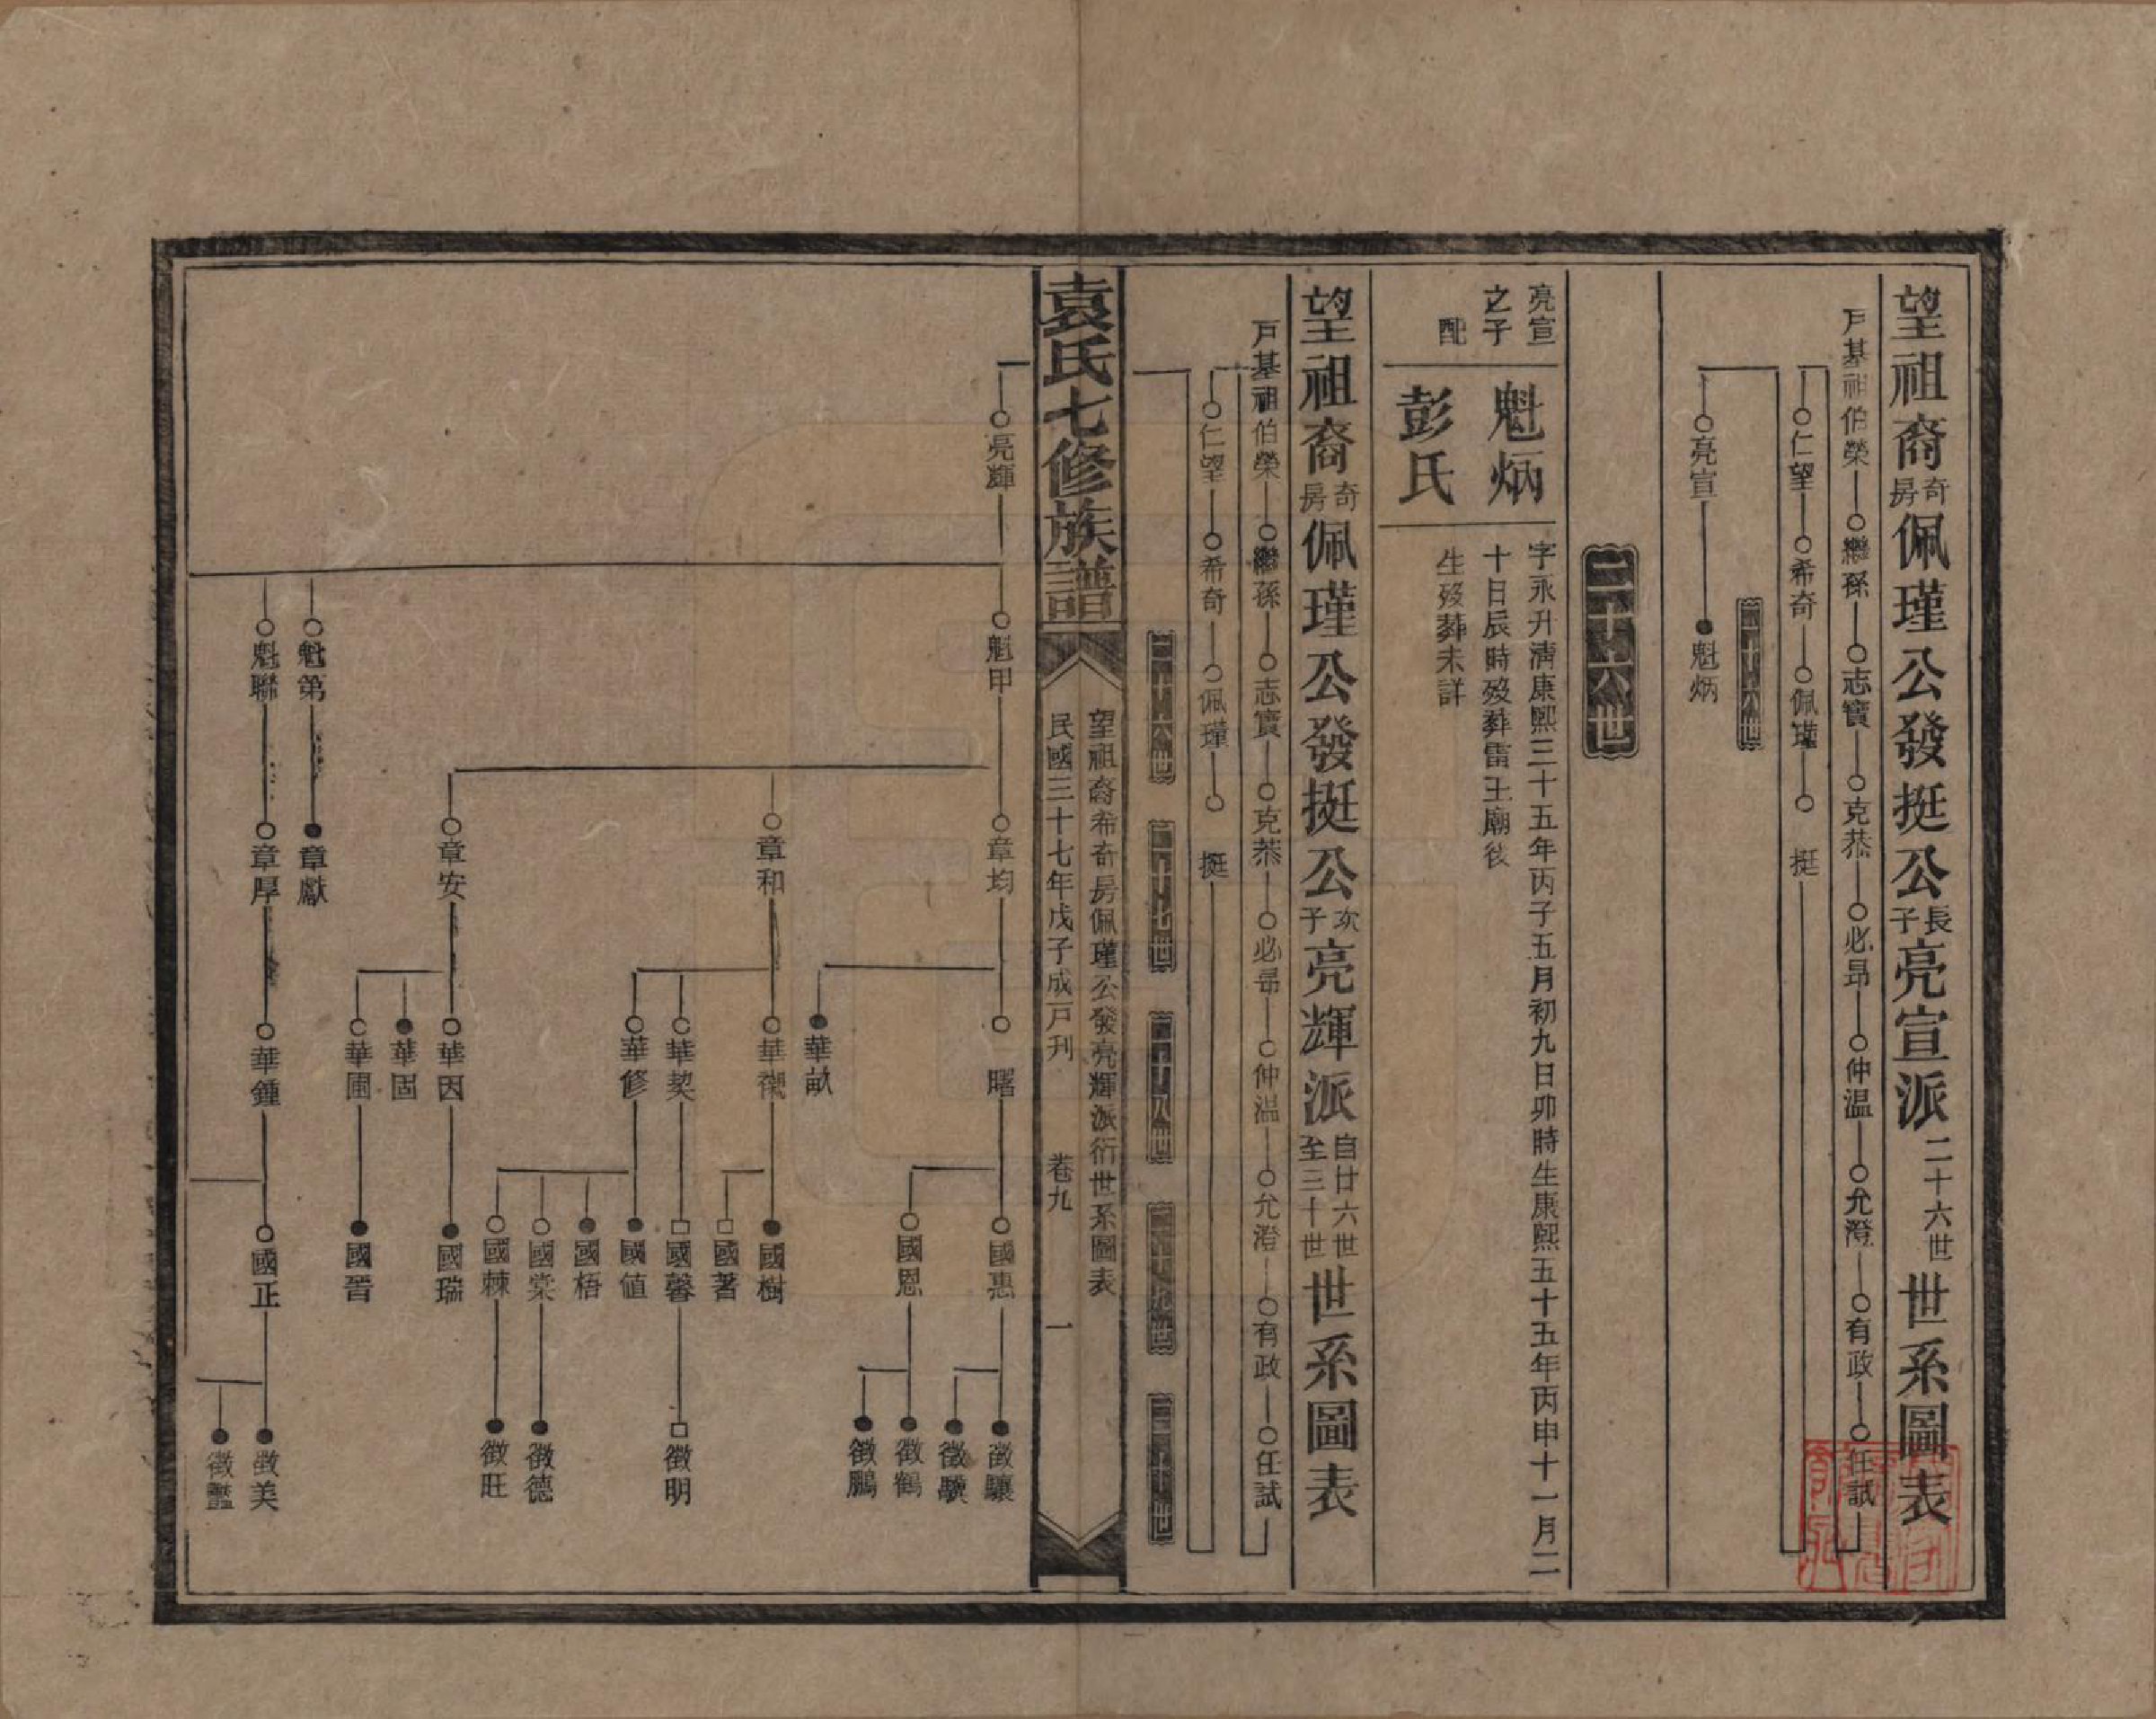 望祖裔奇房佩瑾公發挺公長子亮宣派二十六世世系圖表
戶基祖伯榮 繼孫 志寶 克恭 必昂 仲温 允澄 有政 任試
仁望 希奇 佩瑾 挺
二十六世
亮宣 魁炳
二十六世
亮宣之子 魁炳 字永升清康熙三十五年丙子五月初九日卯時生康熙五十五年丙申十一月二
十日辰時歿葬雷王廟後
配 彭氏 生歿葬未詳
望祖裔奇房佩瑾公發挺公次子亮輝派自廿六世至三十世世系圖表
戶基祖伯榮 繼孫 志寶 克恭 必昂 仲温 允澄 有政 任試
仁望 希奇 佩瑾 挺
二十六世 二十七世 二十八世 二十九世 三十世
望祖裔希奇房佩瑾公發亮輝派衍世系圖表
袁氏七修族譜 民國三十七年戊子成戶刊 卷九 一
亮輝 魁甲 章均 曙 國惠 徵驤
徵驥
國恩 徵鶴
徵鵬
華畝
章和 華 國樹
國著
華契 國馨 徵明
華修 國値
國梧
國棠 徵德
國棘 徵旺
章安 華因 國瑞
華固
華圃 國晉
魁第 章獻
魁聯 章厚 華鍾 國正 徵美
徵豔